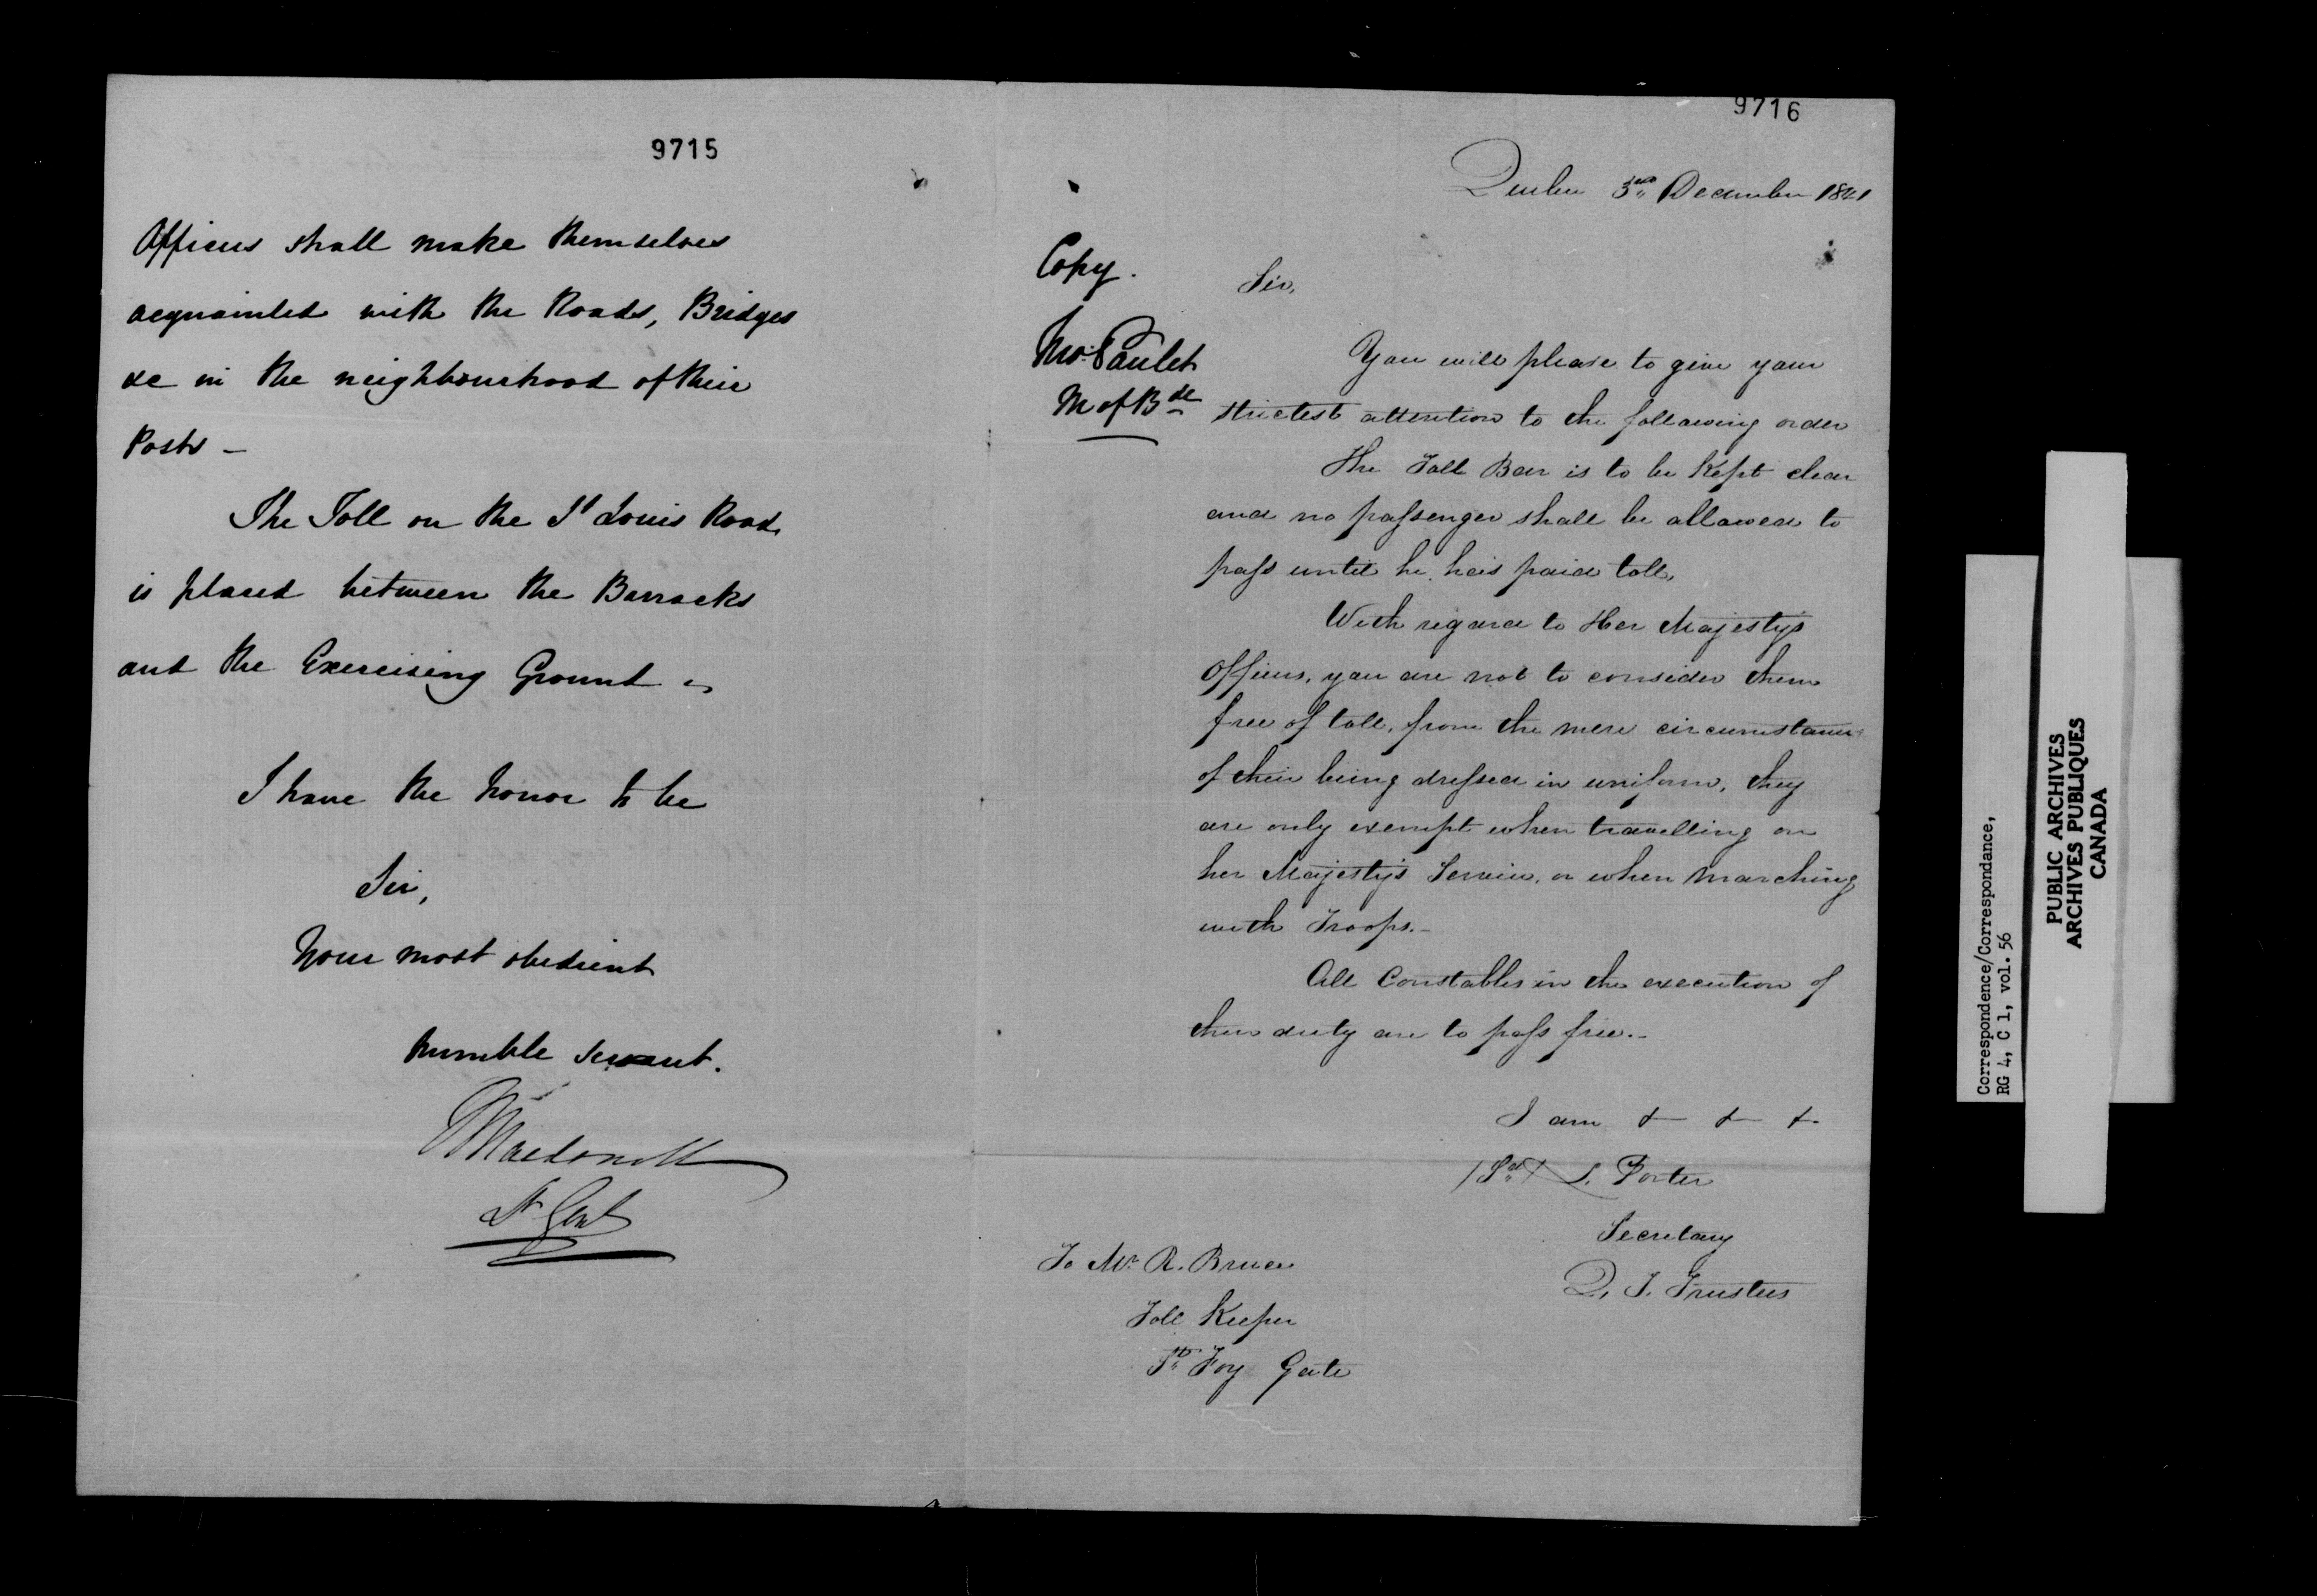 9715
Officers shall make themselves
acquainted with the Roads, Bridges
&c in the neighbourhood of their
Posts -
The Toll on the St Louis Road
is placed between the Barracks
and the Exercising Ground -
I have the honor to be
Sir,
Your most obedient
humble servant.
Macdonell
Lt Genl
9716
Quebec 3rd December 1841
Copy.
Sir,
Paulet
M of Bde
You will please to give your
strictest attention to the following order
The Toll Bar is to be kept clear
and no passenger shall be allowed to
pass until he has paid toll.
With regard to Her Majesty's
Officers, you are not to consider them
free of toll, from the mere circumstance
of their being dressed in uniform, they
are only exempt when travelling on
her Majesty's Service, or when marching
with Troops.-
All Constables in the execution of
their duty are to pass free.-
I am & & &.
/Sd/ L. Porter
Secretary
Q. T. Trustees
To Mr. R. Bruce
Toll Keeper
St. Foy Gate
Correspondence/Correspondance,
RG 4, C 1, vol. 56
PUBLIC ARCHIVES
ARCHIVES PUBLIQUES
CANADA